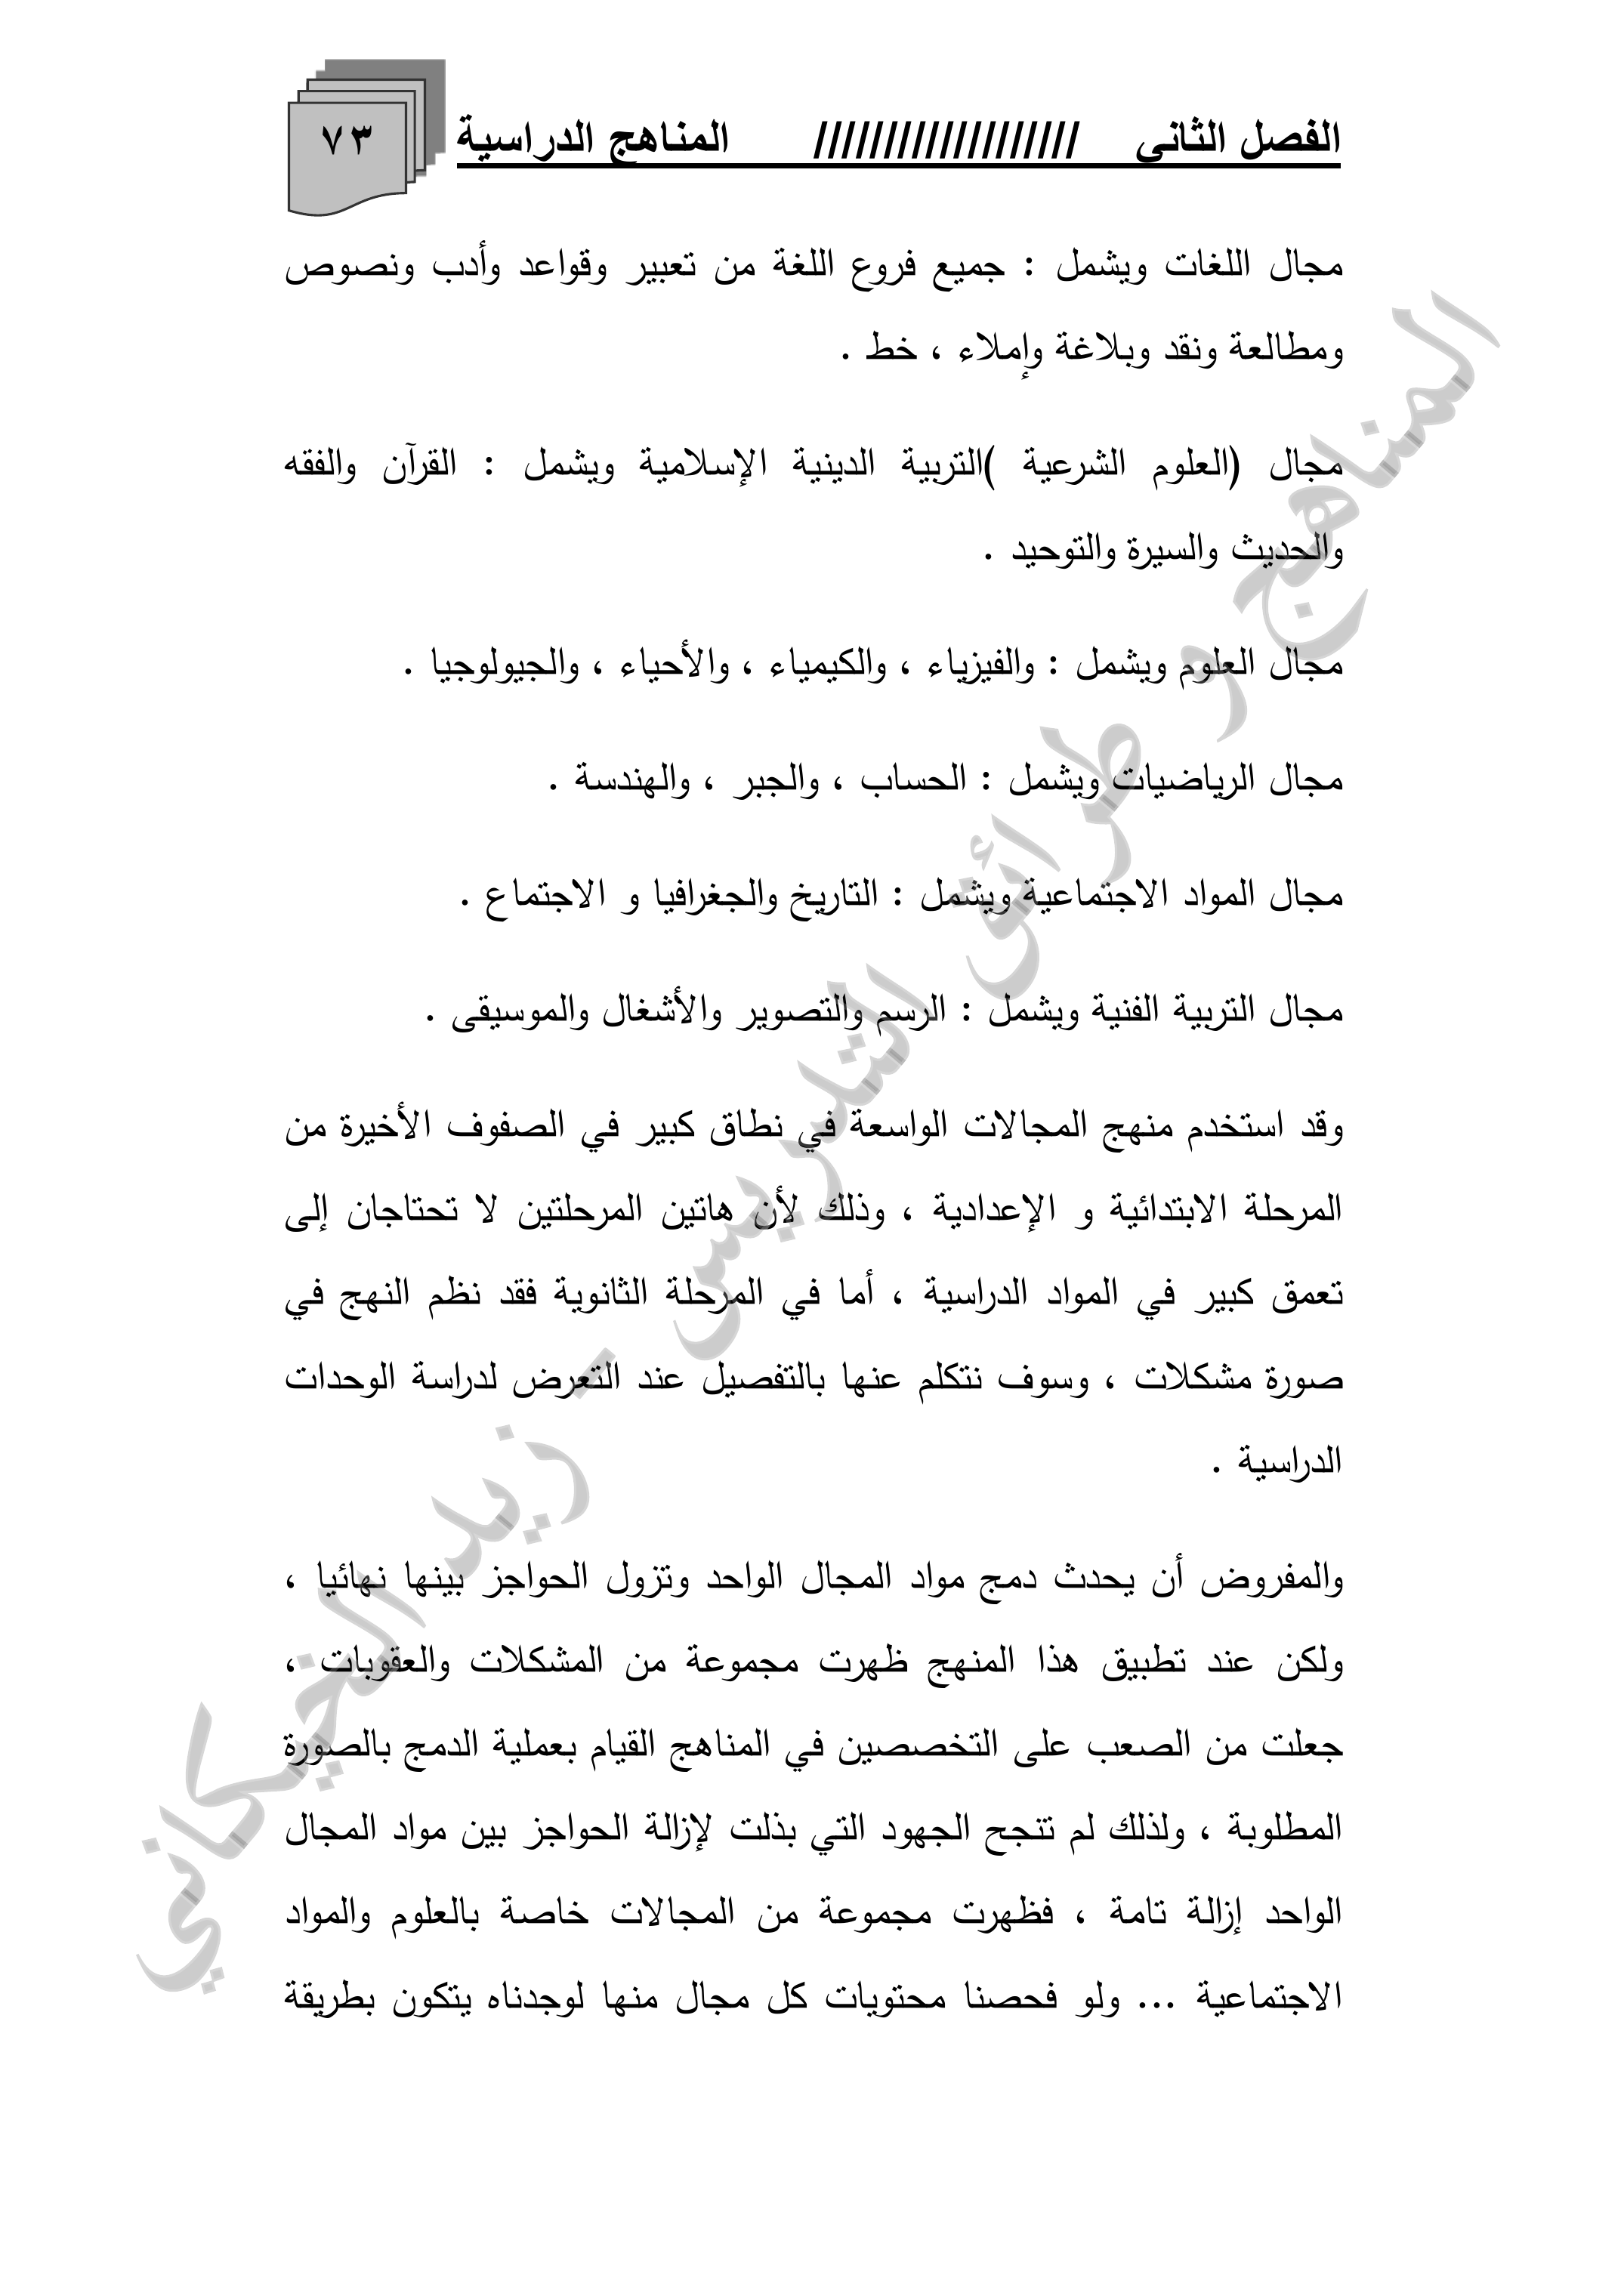 الفصل الثاني /////////////////// المناهج الدراسية ٧٣
مجال اللغات ويشمل : جميع فروع اللغة من تعبير وقواعد وأدب ونصوص
ومطالعة ونقد وبلاغة وإملاء ، خط .
مجال (العلوم الشرعية )التربية الدينية الإسلامية ويشمل : القرآن والفقه
والحديث والسيرة والتوحيد .
مجال العلوم ويشمل : والفيزياء ، والكيمياء ، والأحياء ، والجيولوجيا .
مجال الرياضيات ويشمل : الحساب ، والجبر ، والهندسة .
مجال المواد الاجتماعية ويشمل : التاريخ والجغرافيا و الاجتماع .
مجال التربية الفنية ويشمل : الرسم والتصوير والأشغال والموسيقى .
وقد استخدم منهج المجالات الواسعة في نطاق كبير في الصفوف الأخيرة من
المرحلة الابتدائية و الإعدادية ، وذلك لأن هاتين المرحلتين لا تحتاجان إلى
تعمق كبير في المواد الدراسية ، أما في المرحلة الثانوية فقد نظم النهج في
صورة مشكلات ، وسوف نتكلم عنها بالتفصيل عند التعرض لدراسة الوحدات
الدراسية .
والمفروض أن يحدث دمج مواد المجال الواحد وتزول الحواجز بينها نهائيا ،
ولكن عند تطبيق هذا المنهج ظهرت مجموعة من المشكلات والعقوبات ،
جعلت من الصعب على التخصصين في المناهج القيام بعملية الدمج بالصورة
المطلوبة ، ولذلك لم تنجح الجهود التي بذلت لإزالة الحواجز بين مواد المجال
الواحد إزالة تامة ، فظهرت مجموعة من المجالات خاصة بالعلوم والمواد
الاجتماعية ... ولو فحصنا محتويات كل مجال منها لوجدناه يتكون بطريقة
المناهج و طرائق التدريس - زيد الخيكاني